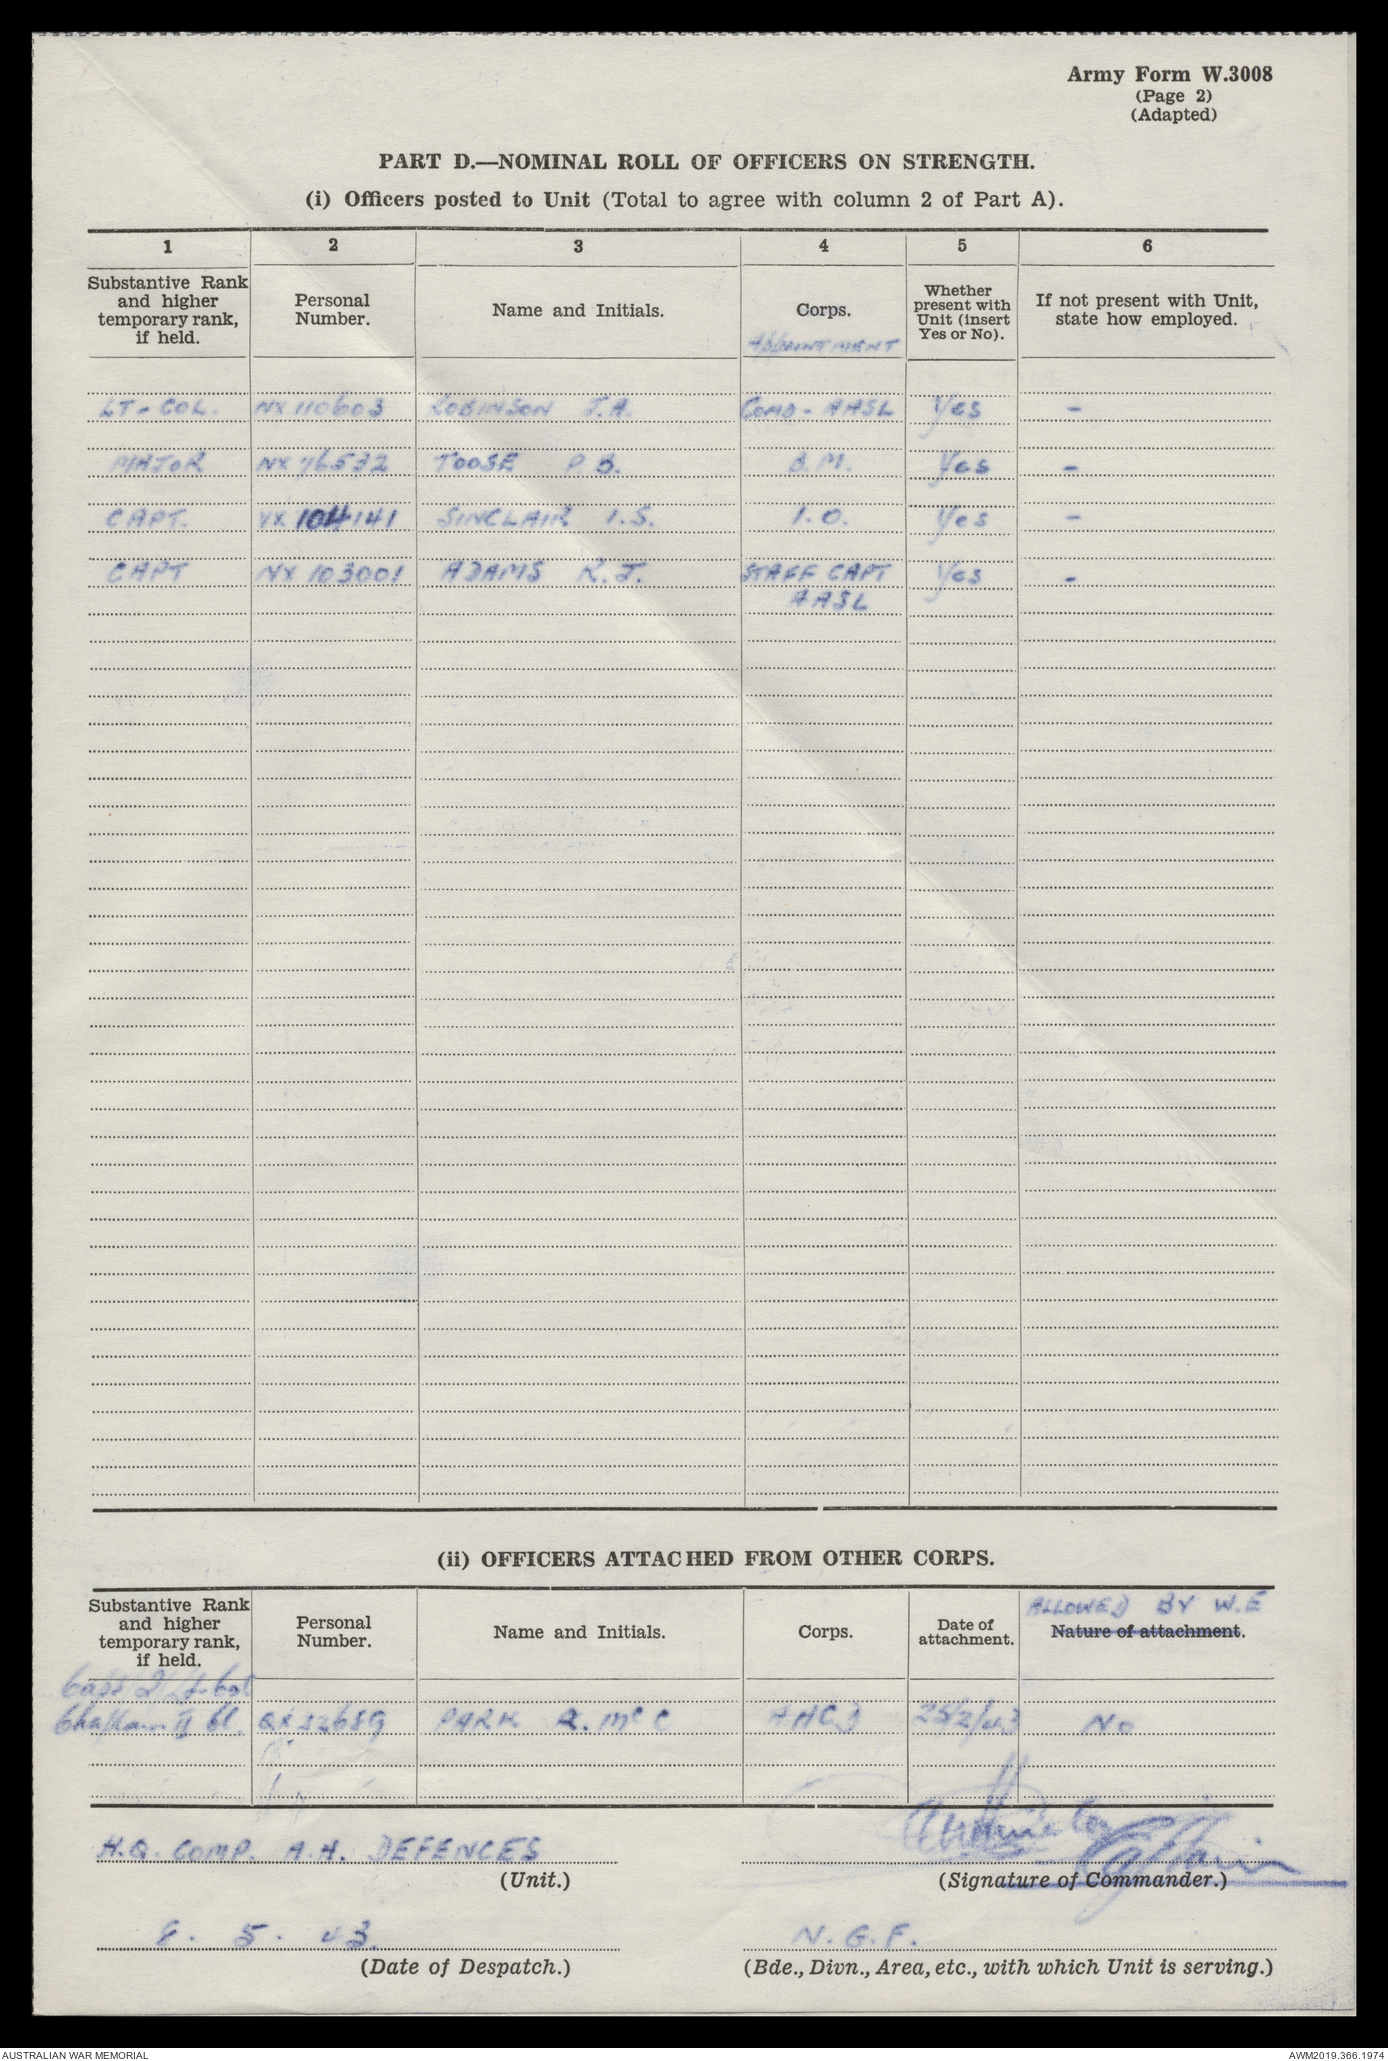 Army Form W.3008
(Page 2)
(Adapted)
PART D.—NOMINAL ROLL OF OFFICERS ON STRENGTH.
(i) Officers posted to Unit (Total to agree with column 2 of Part A).
1 2 3 4 5 6
Substantive Rank and higher temporary rank, if held. Personal Number. Name and Initials. Corps. APPOINTMENT Whether present with Unit (insert Yes or No). If not present with Unit, state how employed.
LT-COL. NX 110603 ROBINSON J.A. COMD - AASL Yes -
MAJOR NX 76532 TOOSE P.B. B.M. Yes -
CAPT. VX 104141 SINCLAIR I.S. I.O. Yes -
CAPT NX 103001 ADAMS R.J. STAFF CAPT Yes -
AASL
(ii) OFFICERS ATTACHED FROM OTHER CORPS.
Substantive Rank and higher temporary rank, if held. Personal Number. Name and Initials. Corps. Date of attachment. ALLOWED BY W.E Nature of attachment.
Chaplain II Cl. QX32689 PARK R. McC AACD 25/2/43 No
H.Q. COMP. A.A. DEFENCES
(Unit.) (Signature of Commander.)
8. 5. 43. N.G.F.
(Date of Despatch.) (Bde., Divn., Area, etc., with which Unit is serving.)
AUSTRALIAN WAR MEMORIAL AWM2019.366.1974